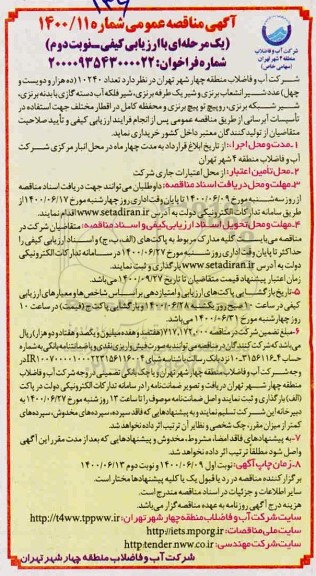 آگهی مناقصه عمومی شماره ۱۴۰۰/۱۱
(یک مرحله‌ای با ارزیابی کیفی_نوبت دوم)
شماره فراخوان: ۲۰۰۰۰۹۳۵۴۳۰۰۰۰۲۲
شرکت آب و فاضلاب
منطقه ۴ شهر تهران
(سهامی خاص)
شرکت آب و فاضلاب منطقه چهار شهر تهران در نظر دارد تعداد ۱۰۲۴۰ (ده هزار و دویست و
چهل) عدد شیر انشعاب برنزی و شیر یک طرفه برنزی، شیر فلکه آب دسته گازی با بدنه برنزی،
شیر شبکه برنزی، رو پیچ تو پیچ برنزی و محفظه کامل در اقطار مختلف جهت استفاده در
تأسیسات آبرسانی از طریق مناقصه عمومی پس از انجام فرایند ارزیابی کیفی و تأیید صلاحیت
متقاضیان از تولید کنندگان معتبر داخل کشور خریداری نماید.
۱_مدت و محل اجرا: از تاریخ ابلاغ قرارداد به مدت چهار ماه در محل انبار مرکزی شرکت
آب و فاضلاب منطقه ۴ شهر تهران
۲_محل تأمین اعتبار: از محل اعتبارات جاری شرکت
۳_مهلت و محل دریافت اسناد مناقصه: داوطلبان می‌توانند جهت دریافت اسناد مناقصه
از روز سه شنبه مورخ ۱۴۰۰/۰۶/۰۹ تا پایان وقت اداری روز چهارشنبه مورخ ۱۴۰۰/۰۶/۱۷ از
طریق سامانه تدارکات الکترونیکی دولت به آدرس www.setadiran.ir اقدام نمایند.
۴_مهلت و محل تحویل اسناد ارزیابی کیفی و اسناد مناقصه: متقاضیان شرکت در
مناقصه می‌بایست کلیه مدارک مربوط به پاکت‌های (الف، ب، ج) و اسناد ارزیابی کیفی را
حداکثر تا پایان وقت اداری روز شنبه مورخ ۱۴۰۰/۰۶/۲۷ در سامانه تدارکات الکترونیکی
دولت به آدرس www.setadiran.ir بارگذاری و ثبت نمایند.
زمان اعتبار پیشنهاد قیمت متقاضیان تا تاریخ ۱۴۰۰/۰۹/۲۷ می‌باشد.
۵_تاریخ بازگشایی پاکت‌های ارزیابی و امتیازدهی بر اساس شاخص‌ها و معیارهای ارزیابی
کیفی در ساعت ۱۰ صبح روز یکشنبه مورخ ۱۴۰۰/۰۶/۲۸ و بازگشایی پاکت ج (قیمت) در ساعت ۱۰
روز چهارشنبه مورخ ۱۴۰۰/۰۶/۳۱ می‌باشد.
۶_مبلغ تضمین شرکت در مناقصه ۷۱۷,۱۷۲,۰۰۰ (هفتصد و هفده میلیون و یکصد و هفتاد و دو هزار) ریال
می‌باشد که شرکت کنندگان در مناقصه می‌توانند به صورت فیش واریزی نقدی و یا ضمانتنامه بانکی به شماره
حساب نزد بانک رسالت با شماره شبای
وجه شرکت آب و فاضلاب منطقه چهار شهر تهران و یا چک بانکی تضمینی در وجه شرکت آب و فاضلاب
منطقه چهار شهر تهران دریافت و تصویر ضمانتنامه را در سامانه تدارکات الکترونیکی دولت در پاکت
(الف) بارگذاری و ثبت نمایند و اصل ضمانتنامه موصوف را تا ساعت ۱۳ روز شنبه مورخ ۱۴۰۰/۰۶/۲۷ به
دبیرخانه این شرکت تسلیم نمایند و به پیشنهادهایی که فاقد سپرده، سپرده‌های مخدوش، سپرده‌های
کمتر از میزان مقرر، چک شخصی و نظایر آن ترتیب اثر داده نخواهد شد.
۷_به پیشنهادهای فاقد امضا، مشروط، مخدوش و پیشنهادهایی که بعد از مدت مقرر این آگهی
واصل شود مطلقا ترتیب اثر داده نخواهد شد.
۸_زمان چاپ آگهی: نوبت اول ۱۴۰۰/۰۶/۰۹ و نوبت دوم ۱۴۰۰/۰۶/۱۳
برگزار کننده مناقصه در رد یا قبول یک یا کلیه پیشنهادها مختار است.
سایر اطلاعات و جزئیات در اسناد مناقصه مندرج است.
هزینه درج آگهی روزنامه به عهده مناقصه گزار می‌باشد.
سایت شرکت آب و فاضلاب منطقه چهار شهر تهران: http://t4ww.tppww.ir
سایت ملی مناقصات: http://iets.mporg.ir
سایت شرکت مهندسی: http:tender.nww.co.ir
شرکت آب و فاضلاب منطقه چهار شهر تهران